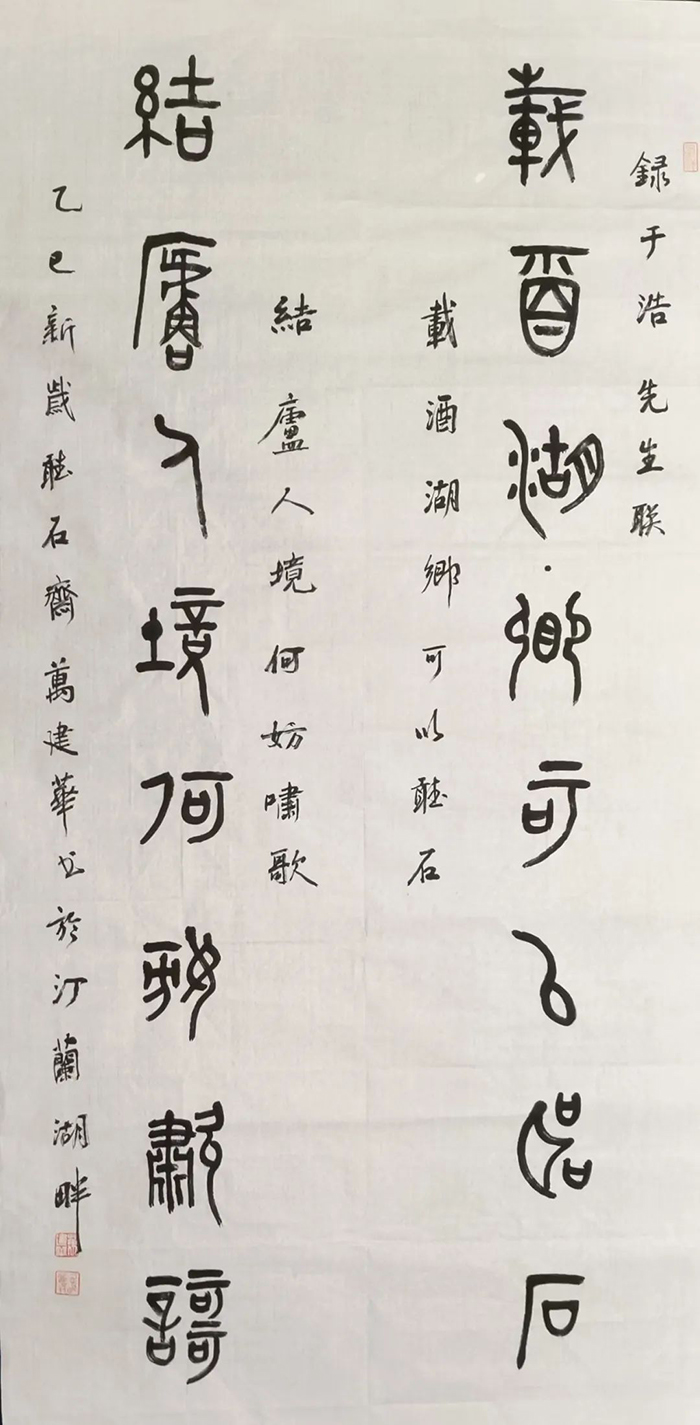 録于浩先生联
載酒湖鄉可以聽石
載酒湖鄉可以聽石
結廬人境何妨嘯歌
結廬人境何妨嘯歌
乙巳新歲聽石齋萬建華书於汀蘭湖畔